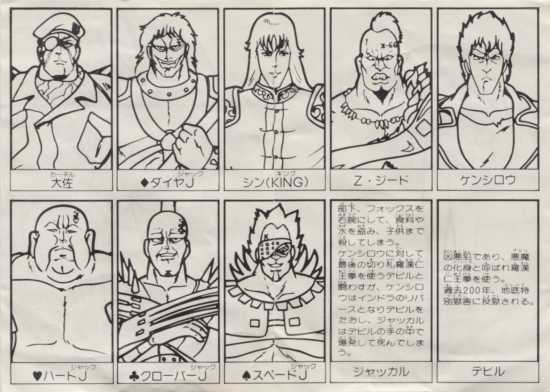 カーネル
大佐
ジャック
♦ダイヤJ
キング
シン(KING)
Z・ジード
ケンシロウ
ジャック
♥ハートJ
ジャック
♣クローバーJ
ジャック
♠スペードJ
部下、フォックスを
右腕にして、食料や
水を盗み、子供まで
殺してしまう。
ケンシロウに対して
最後の切り札羅漢仁
王拳を使うデビルと
闘わすが、ケンシロ
ウはインドラのリバ
ースとなりデビルを
たおし、ジャッカル
はデビルの手の中で
爆発して死んでしま
う。
ジャッカル
凶悪犯であり、悪魔
の化身と呼ばれ羅漢
仁王拳を使う。
過去200年、地底特
別獄舎に反獄される。
デビル